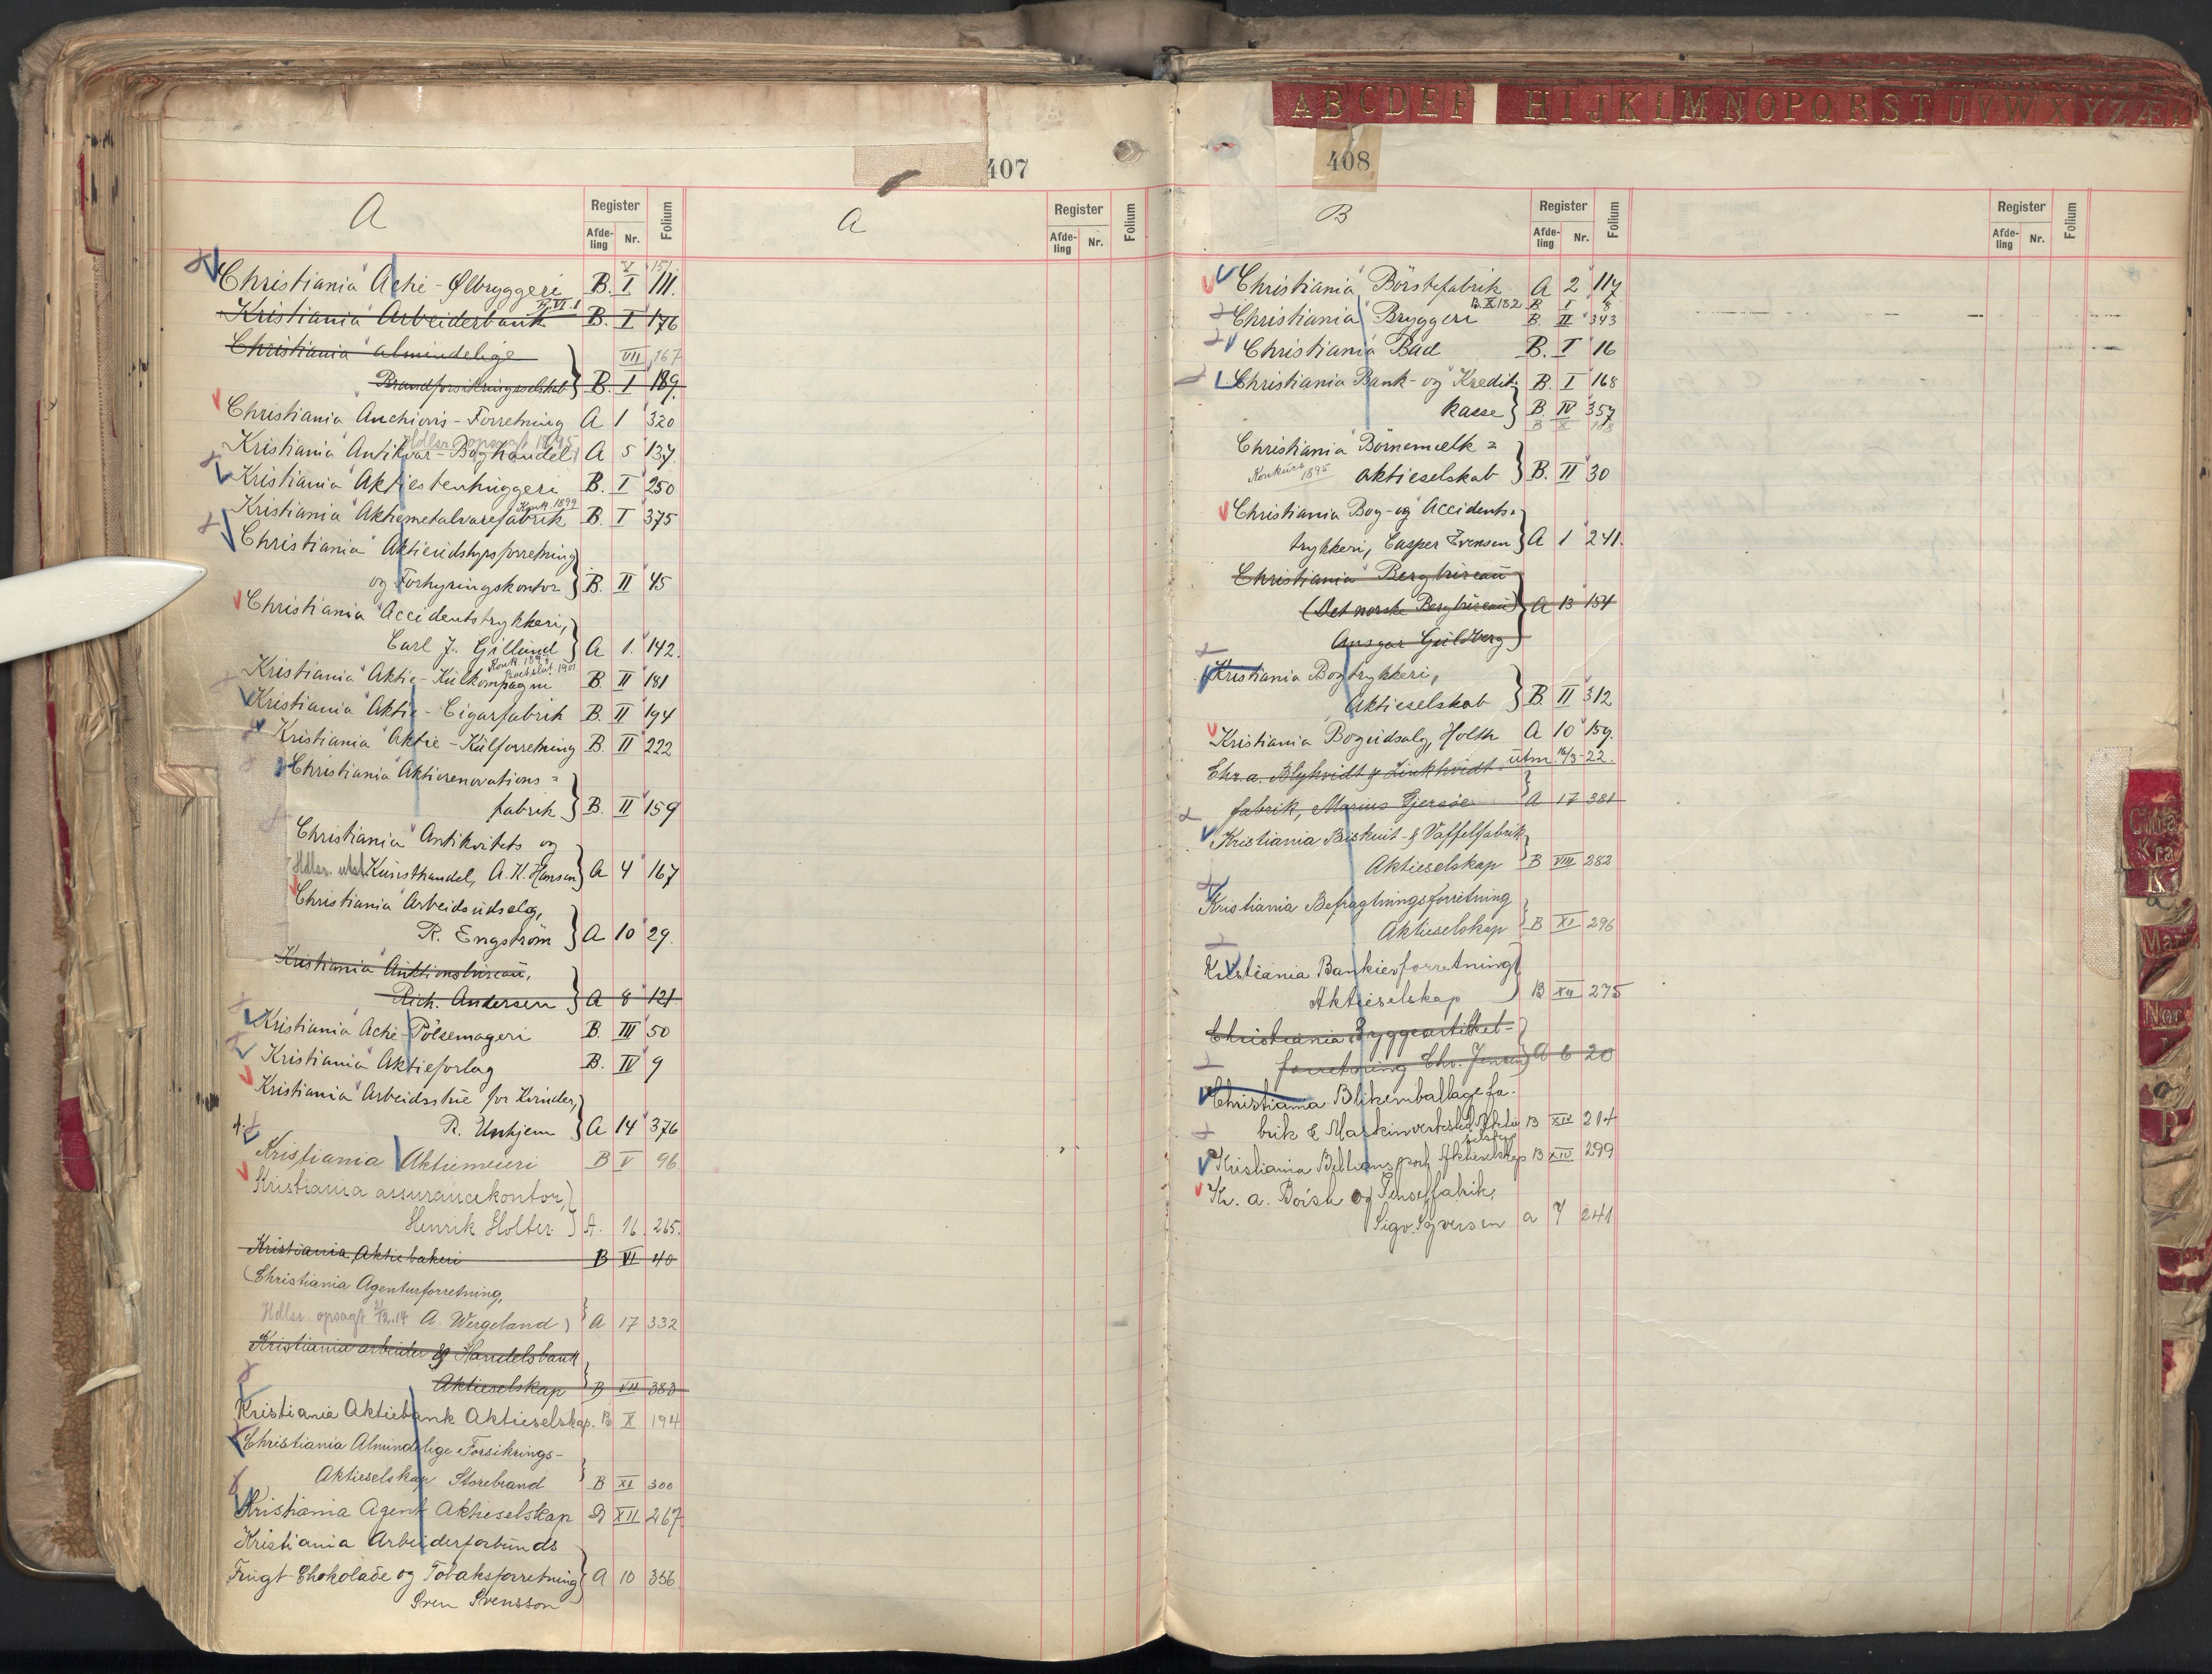 407
A
Register
Afde-ling
Nr.
Folium
A
Register
Afde-ling
Nr.
Folium
V 151
Christiania Actie-Ølbryggeri B. I 111.
B. VI. 1
Kristiania Arbeiderbank B. I 176
Christiania almindelige VII 167
Brandforsikringsselskab B. I 189.
Christiania Anchiovis-Forretning A 1 320
Hdlsr. opsagt 1895
Kristiania Antikvar-Boghandel A 5 137.
Kristiania Aktiestenhuggeri B. I 250
Konk. 1899
Kristiania Aktiemetalvarefabrik B. I 375
Christiania Aktieudstyrsforretning
og Forhyringskontor B. II 45
Christiania Accidentstrykkeri,
Carl J. Gillund A 1. 142.
Konk. 1901
Kristiania Aktie-Kulkompagni B. II 181
Kristiania Aktie-Cigarfabrik B. II 194
Kristiania Aktie-Kulforretning B. II 222
Christiania Aktierenovations=
fabrik B. II 159
Christiania Antikvitets og
Hdlsr. Kunsthandel, A. K. Hansen A 4 167
Christiania Arbeidsudsalg,
R. Engström A 10 29.
Kristiania Auktionsbureau,
Rich. Andersen A 8 121
Kristiania Actie-Pölsemageri B. III 50
Kristiania Aktieforlag B. IV 9
Kristiania Arbeidsstue for Kvinder,
R. Unhjem A 14 376
Kristiania Aktiemeieri B V 96
Kristiania assurancekontor,
Henrik Holter A. 16 265.
Kristiania Aktiebakeri B VI 40
(Christiania Agenturforretning,
Hdlsr. opsagt 2/12.14 A. Wergeland) A 17 332
Kristiania arbeider & Handelsbank
Aktieselskap B VII 383
Kristiania Aktiebank Aktieselskap. B X 194
Christiania Almindelige Forsikrings-
Aktieselskap Storebrand B XI 300
Kristiania Agent Aktieselskap B XII 267
Kristiania Arbeiderforbunds
Frugt-Chokolade og Tobaksforretning A 10 356
Sven Svensson
408
A B C D E F H I J K L M N O P Q R S T U V W X Y Z Æ
B
Register
Afde-ling
Nr.
Folium
Register
Afde-ling
Nr.
Folium
Christiania Börstefabrik A 2 117
B. X 182 B I 8
Christiania Bryggeri B. II 343
Christiania Bad B. I 16
Christiania Bank- og Kredit- B. I 168
kasse B. IV 357
B X 108
Christiania Börnemælk=
Konkurs 1895 aktieselskab B. II 30
Christiania Bog- og Accidents=
trykkeri, Casper Evensen A 1 241.
Christiania Bergbureau
(Det norske Bergbureau) A 13 154
Ansgar Guldberg
Kristiania Bogtrykkeri,
Aktieselskab B. II 312
Kristiania Bogudsalg, Holth A 10 159.
Chr.a. Blyhvidt & Zinkhvidt- utm. 16/3-22.
fabrik, Marius Gjersøe A 17 381
Kristiania Biskuit- & Vaffelfabrik
Aktieselskap B VIII 282
Kristiania Befragtningsforretning
Aktieselskap B XI 296
Kristiania Bankierforretning
Aktieselskap B XII 275
Christiania Byggeartikkel-
forretning Chr. Jensen A 6 20
Christiania Blikemballagefa-
brik & Maskinverksted Aktie B XIV 214
selskap
Kristiania Biltransport Aktieselskap B XIV 299
Kr. a. Börste og Penselfabrik,
Sigv. Syversen a 7 241
Kra
K
Nor
P